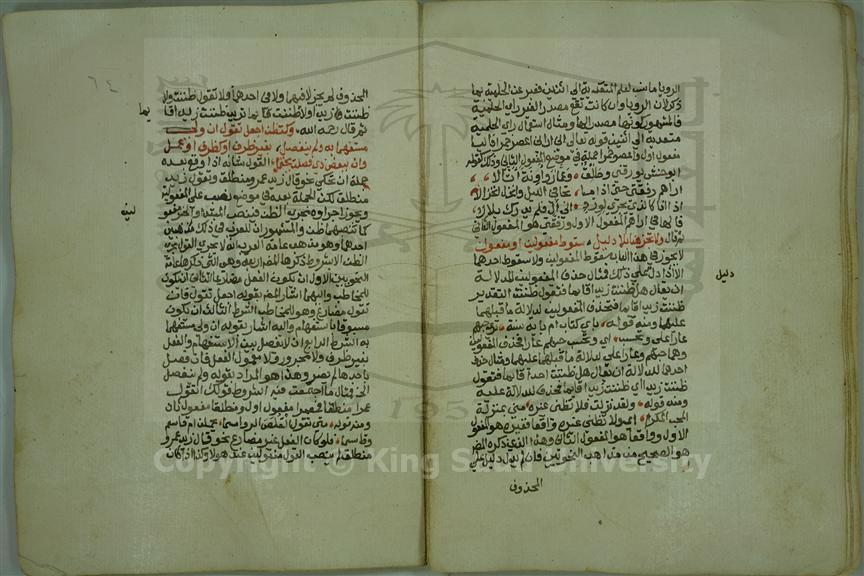 الرويا ما ينسب لعلم المتعدية الى اثنين فعبر عن الحلمية بما
ذكر لان الرويا وان كانت تقع مصدر الغير راى الحلمية
فالمشهور كونها مصدرا لها ومثال استعمال راى الحلمية
متعدية الى اثنين قوله تعالى انى ارانى اعصر خمرا فاليا
مفعول اول واعصر خمرا جملة في موضع المفعول الثاني وكذلك قوله
ابو حنش يورقني وطلق وعمار واونة اثالا
اراهم رفقتي حتى اذا ما تجافى الليل وانخزل انخزالا
اذا انا كالذي يجري لورد الى آل فلم يدرك بلالا
فالها في اراهم المفعول الاول ورفقتي هو المفعول الثاني
ثم قال ولا تجز هنا بلا دليل سقوط مفعولين او مفعول
لا يجوز في هذا الباب سقوط المفعولين ولا سقوط احدهما
الا اذا دل على ذلك فمثال حذف المفعولين للدلالة
ان يقال هل ظننت زيدا قايما فتقول ظننت التقدير
ظننت زيدا قايما فتحذف المفعولين لدلالة ما قبلهما
عليهما ومنه قوله باي كتاب ام باية سنة ترى حبهم
عارا علي وتحسب اي وتحسب حبهم عارا فحذف المفعولين
وهما حبهم وعارا علي لدلالة ما قبلهما عليهما ومثال حذف
احدهما للدلالة ان يقال هل ظننت احدا قايما فتقول
ظننت زيدا اي ظننت زيدا قايما فتحذف للدلالة عليه
ومنه قوله ولقد نزلت فلا تظني غيره مني بمنزلة
المحب المكرم اي فلا تظني غيره واقعا فغيره هو المفعول
الاول وواقعا هو المفعول الثاني وهذا الذي ذكره المص
هو الصحيح من مذاهب النحويين فان لم يدل دليل على
المحذوف
دليل
٦٤
المحذوف لم يجز لا فيهما ولا في احدهما ولا تقول ظننت ولا
ظننت زيدا ولا ظننت قايما تريد ظننت زيدا قا
يما
ثم قال رحمه الله وكتظن اجعل تقول ان ولي
مستفهما به ولم ينفصل بغير ظرف او كظرف او عمل
وان ببعض ذي فصلت يحتمل القول شانه اذا وقع بعده
جملة ان تحكى نحو قال زيد عمرو منطلق وتقول زيد
منطلق لكن الجملة بعده في موضع نصب على المفعولية
ويجوز اجراوه مجرى الظن فتنصب المبتدا والخبر مفعو
لين
كما تنصبهما ظن والمشهور ان للعرب في ذلك مذهبين
احدهما وهو مذهب عامة العرب انه لا يجري القول مجرى
الظن الا بشروط ذكرها المص اربعة وهي التي ذكرها عامة
النحويين الاول ان يكون الفعل مضارعا الثاني ان يكون
للمخاطب واليهما اشار المص بقوله اجعل تقول فان
تقول مضارع وهو للمخاطب الشرط الثالث ان يكون
مسبوقا باستفهام واليه اشار بقوله ان ولي مستفهما
به الشرط الرابع ان لا يفصل بين الاستفهام والفعل
بغير ظرف ولا مجرور ولا معمول الفعل فان فصل
باحدها لم يضر وهذا هو المراد بقوله ولم ينفصل
الخ فمثال ما اجتمعت فيه الشروط قولك اتقول
عمرا منطلقا فعمرا مفعول اول ومنطلقا مفعول ثان
ومنه قوله متى تقول القلص الرواسما يحملن ام قاسم
وقاسما فلو كان الفعل غير مضارع نحو قال زيد عمرو
منطلق لم ينصب القول مفعولين عند هولا وكذا ان كان
Copyright © King Saud University
1957